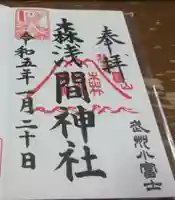 奉拝
森浅間神社
令和五年一月二十日
武州小富士